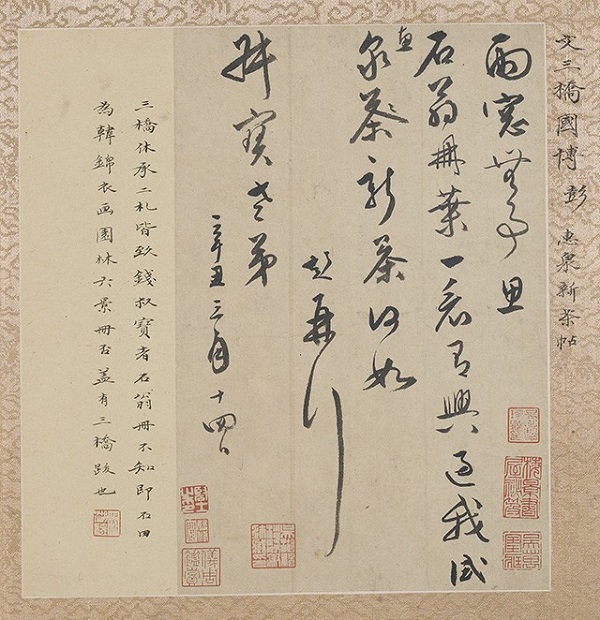 文三橋國博 彭 惠泉新茶帖
雨窓無事思
石翁冊葉一看有興過我試
惠泉茶新茶何如
彭再拜
叔寶老弟
辛丑三月十四日
三橋休承二札皆致錢叔寶者石翁冊不知即石田
為韓錦衣画園林六景冊否蓋有三橋跋也